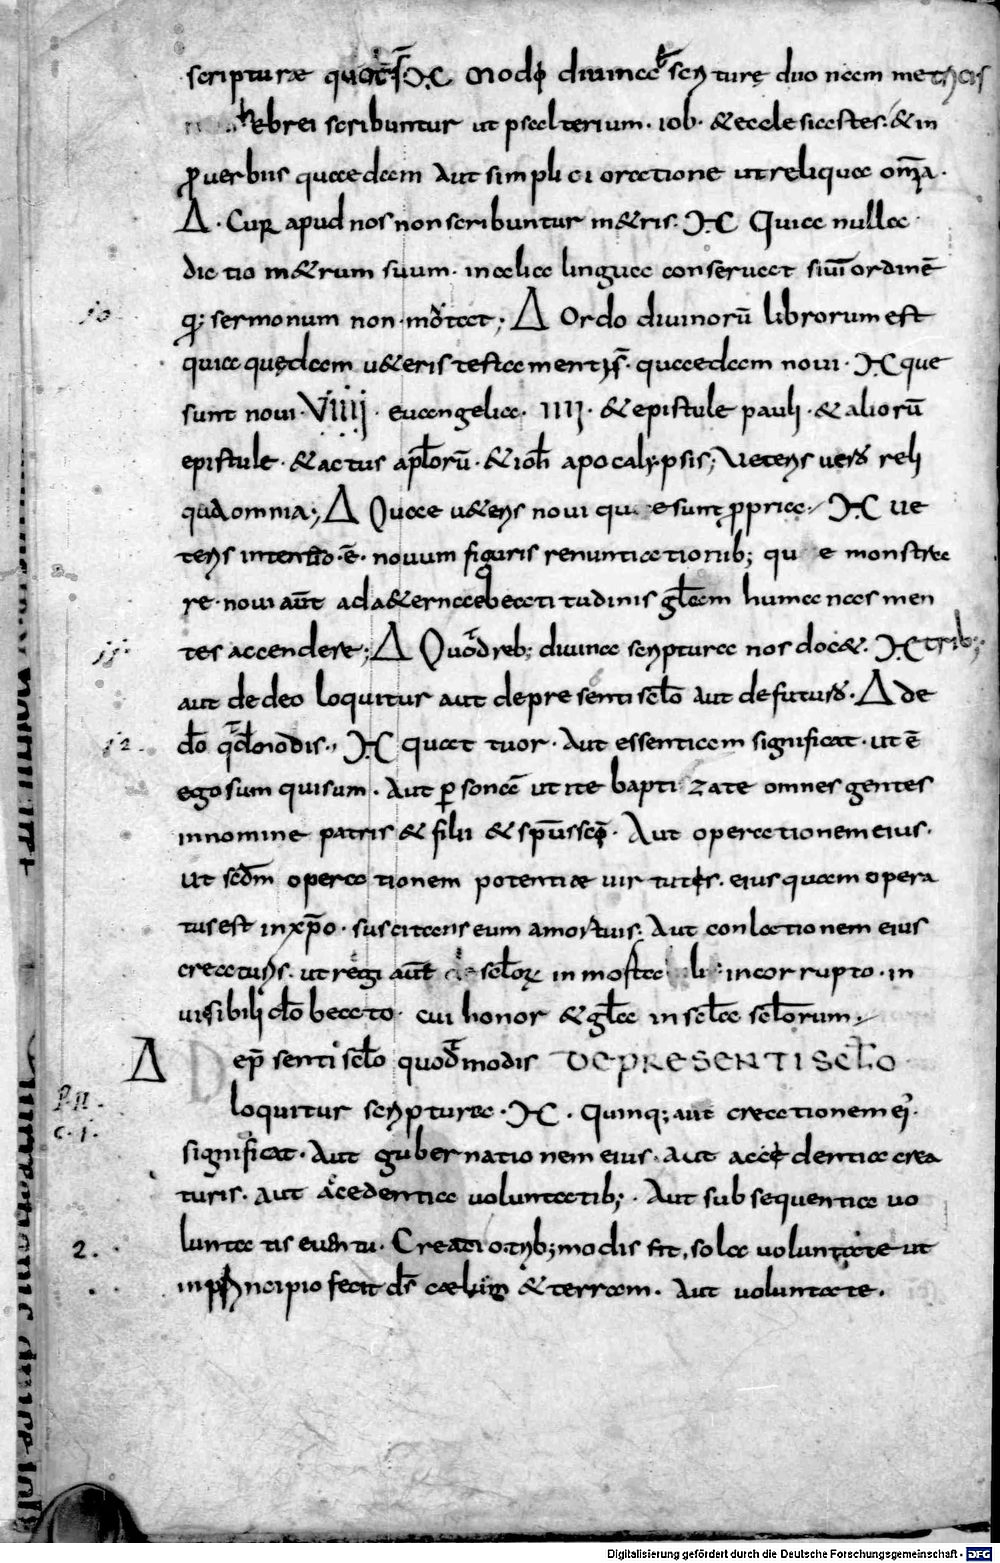 scripturæ quot s̄ ᛞC modꝰ diuinæ scripture duo nam metricis
hebrei scribuntur ut psalterium· iob· & ecclesiastes· & in
ꝓuerbiis quaedam Aut simplici oratione ut reliqua om̄a·
Δ· Cur apud nos non scribuntur m&ris· ᛞC Quia nulla
dictio m&rum suum· in alia lingua conseruat siuī ordinē
q; sermonum non mutat; Δ Ordo diuinorū librorum est
quia quędam u&eris testamenti s̄· quaedam noui· ᛞC que
sunt noui· Viiij· euangelia· iiij· & epistule pauli· & aliorū
epistule· & actus apl̄orū· & ioh̄ apocalypsis; Veteris uero reli
qua omnia; Δ Quae u&eris noui que sunt ꝓpria· ᛞC ue
teris intentio ē· nouum figuris renuntiationib; que monstra
re· noui aūt ad a&erna beatitudinis gl̄am humanas men
tes accendere; Δ Quod reb; diuina scriptura nos doc&· ᛞC trib;
aut de deo loquitur aut de presenti scl̄o aut de futuro· Δ de
do q̄d modis· ᛞC quattuor· Aut essentiam significat· ut ē
ego sum qui sum· Aut ꝑsonā ut ite baptizate omnes gentes
in nomine patris & filii & sp̄us scī· Aut operationem eius·
Ut sc̄dm operationem potentiae uirtutis· eius quam opera
tus est in xp̄o· suscitans eum a mortuis· Aut conlationem eius
creaturis· ut regi aūt scl̄oꝝ inmortali incorrupto· in
uisibili d̄o beato· cui honor & gl̄a in scl̄a scl̄orum·
Δ Dep̄senti scl̄o quod modis DE PRESENTI SCL̄O
loquitur scriptura· ᛞC· Quinq; aut creationem ei·
significat· Aut gubernationem eius· aut accedentia crea
turis· aut accedentia uoluntatib;· Aut subsequentia uo
luntatis euentu· Creatio trib; modis fit, sola uoluntate ut
in principio fecit ds̄ cælum & terram· Aut uoluntate·
10
11
12·
P. II·
c. 1·
2·
Digitalisierung gefördert durch die Deutsche Forschungsgemeinschaft - DFG